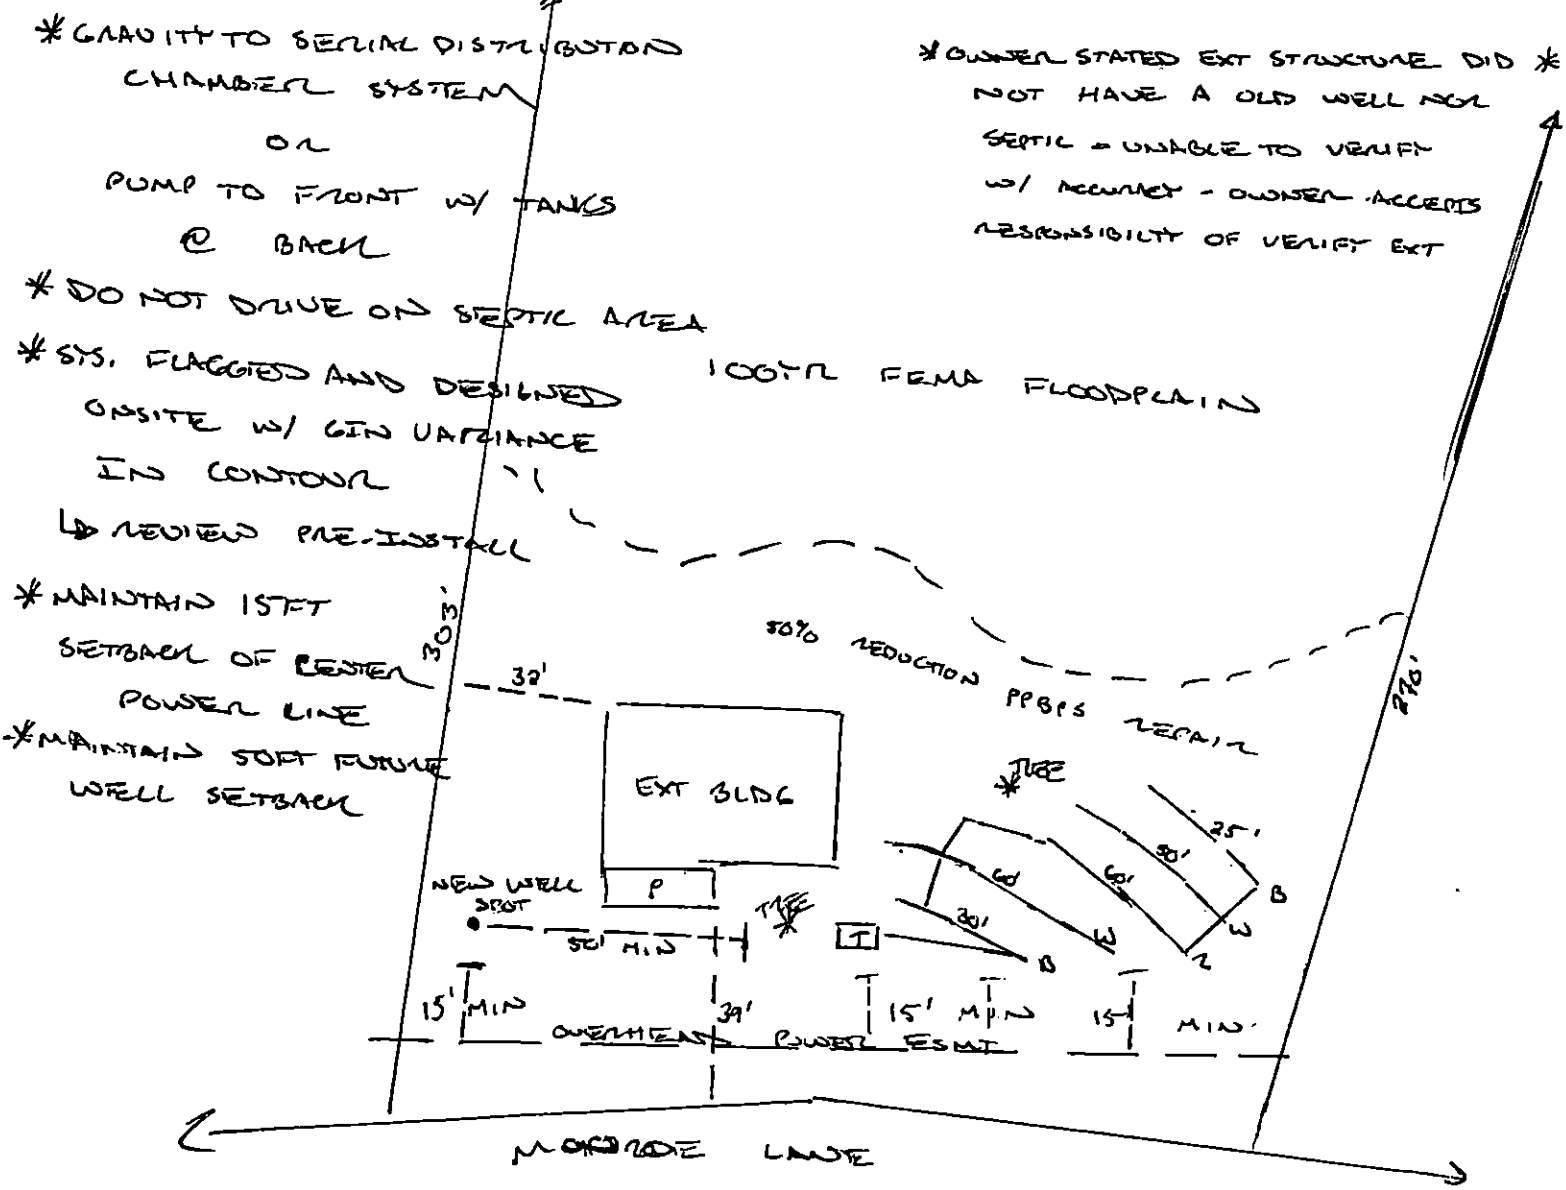 * GRAVITY TO SERIAL DISTRIBUTION
CHAMBER SYSTEM
OR
PUMP TO FRONT W/ TANKS
@ BACK
* DO NOT DRIVE ON SEPTIC AREA
* SYS. FLAGGED AND DESIGNED
ONSITE W/ 6IN VARIANCE
IN CONTOUR
↳ REVIEW PRE-INSTALL
* MAINTAIN 15FT
SETBACK OF CENTER
POWER LINE
* MAINTAIN 50FT FUTURE
WELL SETBACK
* OWNER STATED EXT STRUCTURE DID *
NOT HAVE A OLD WELL NOR
SEPTIC - UNABLE TO VERIFY
W/ ACCURACY - OWNER ACCEPTS
RESPONSIBILTY OF VERIFY EXT
100YR FEMA FLOODPLAIN
303'
270'
32'
50% REDUCTION PPBPS REPAIR
EXT BLDG
P
TREE
25'
50'
60'
60'
30'
B
W
R
W
B
NEW WELL
SPOT
50' MIN
TREE
T
15' MIN
39'
15' MIN
15' MIN.
OVERHEAD POWER ESMT
LANE